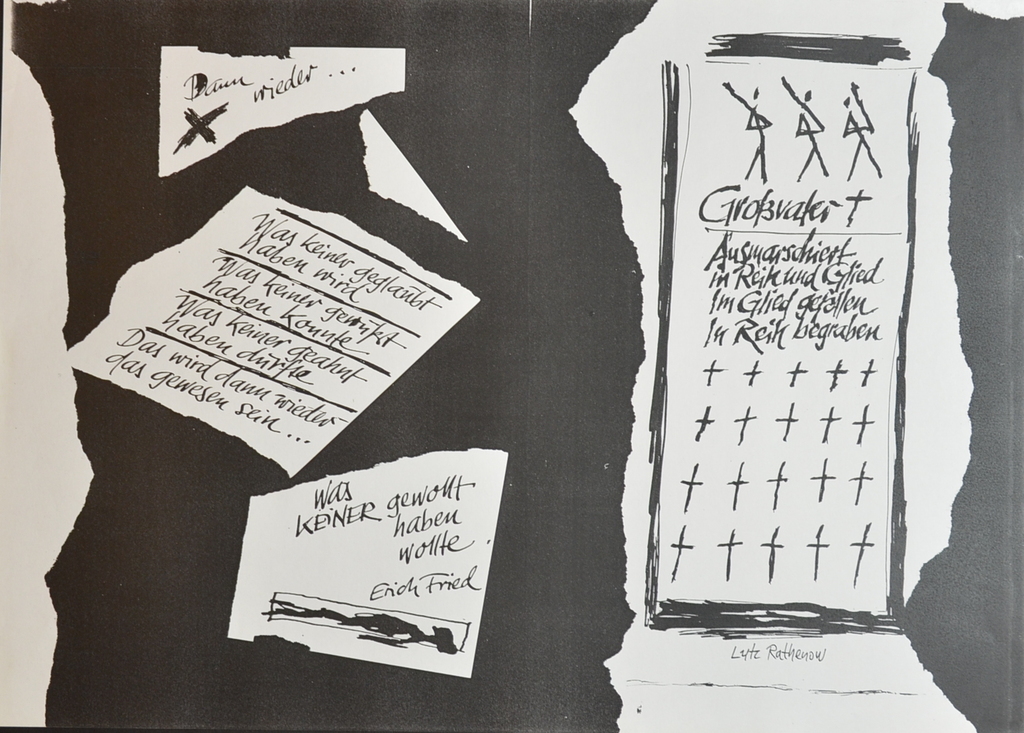 Dann
wieder ...
Was keiner geglaubt
haben wird
Was keiner gewußt
haben konnte
Was keiner geahnt
haben dürfte
Das wird dann wieder
das gewesen sein ...
Was
KEINER gewollt
haben
wollte.
Erich Fried
Großvater †
Ausmarschiert
in Reih und Glied
Im Glied gefallen
In Reih begraben
Lutz Rathenow